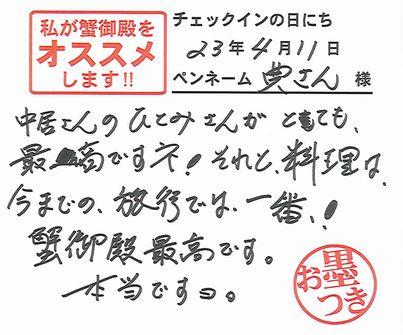 私が蟹御殿を
オススメ
します!!
チェックインの日にち
23年4月11日
ペンネーム 典さん 様
中居さんのひとみさんがとても、
最高です不!それと、料理は、
今までの、旅行では、一番、!
蟹御殿最高です。
本当ですョ。
お墨つき